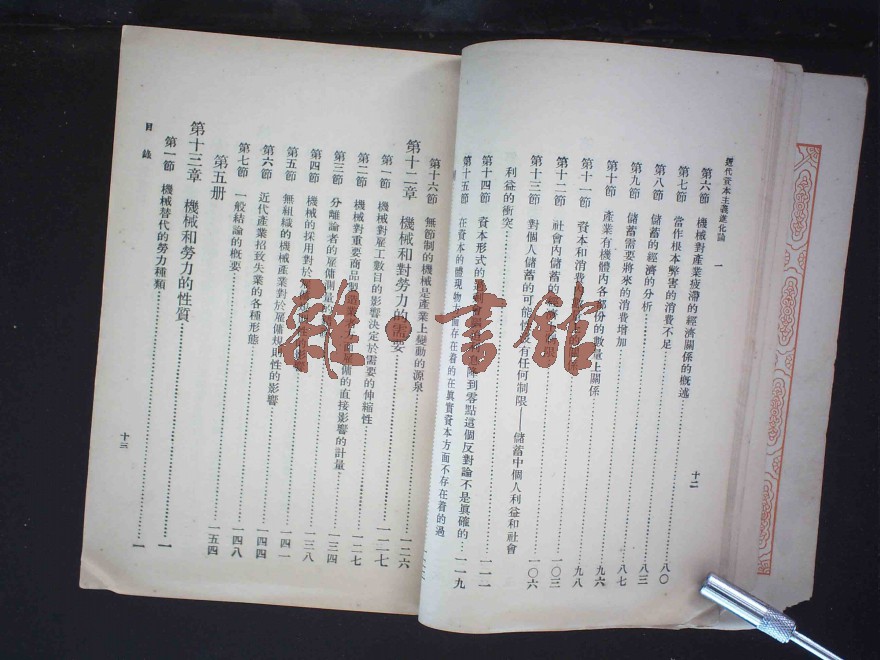 近代資本主義進化論
十二
第六節 機械對產業疲滯的經濟關係的概述 八〇
第七節 當作根本弊害的消費不足
第八節 儲蓄的經濟的分析 八三
第九節 儲蓄需要將來的消費增加 八七
第十節 產業有機體內各部份的數量上關係 九六
第十一節 資本和消費 九八
第十二節 社會內儲蓄的經濟 限 一〇三
第十三節 對個人儲蓄的可能性沒有任何制限——儲蓄中個人利益和社會
利益的衝突 一〇六
第十四節 資本形式的 到零點這個反對論不是真確的 一一一
第十五節 在資本的體現物 面存在着的在真實資本方面不存在着的過 一一九
第十六節 無節制的機械是產業上變動的源泉
第十二章 機械和對勞力的需要 一二六
第一節 機械對雇工數目的影響決定於需要的伸縮性 一二七
第二節 機械對重要商品製造業 雇傭的直接影響的計量 一二七
第三節 分離論者的雇傭測量 一三四
第四節 機械的採用對於 一三八
第五節 無組織的機械產業對於雇傭規則性的影響 一四一
第六節 近代產業招致失業的各種形態 一四四
第七節 一般結論的概要 一四八
第五册 一五四
第十三章 機械和勞力的性質 一
第一節 機械替代的勞力種類 一
目錄
十三
雜·書館